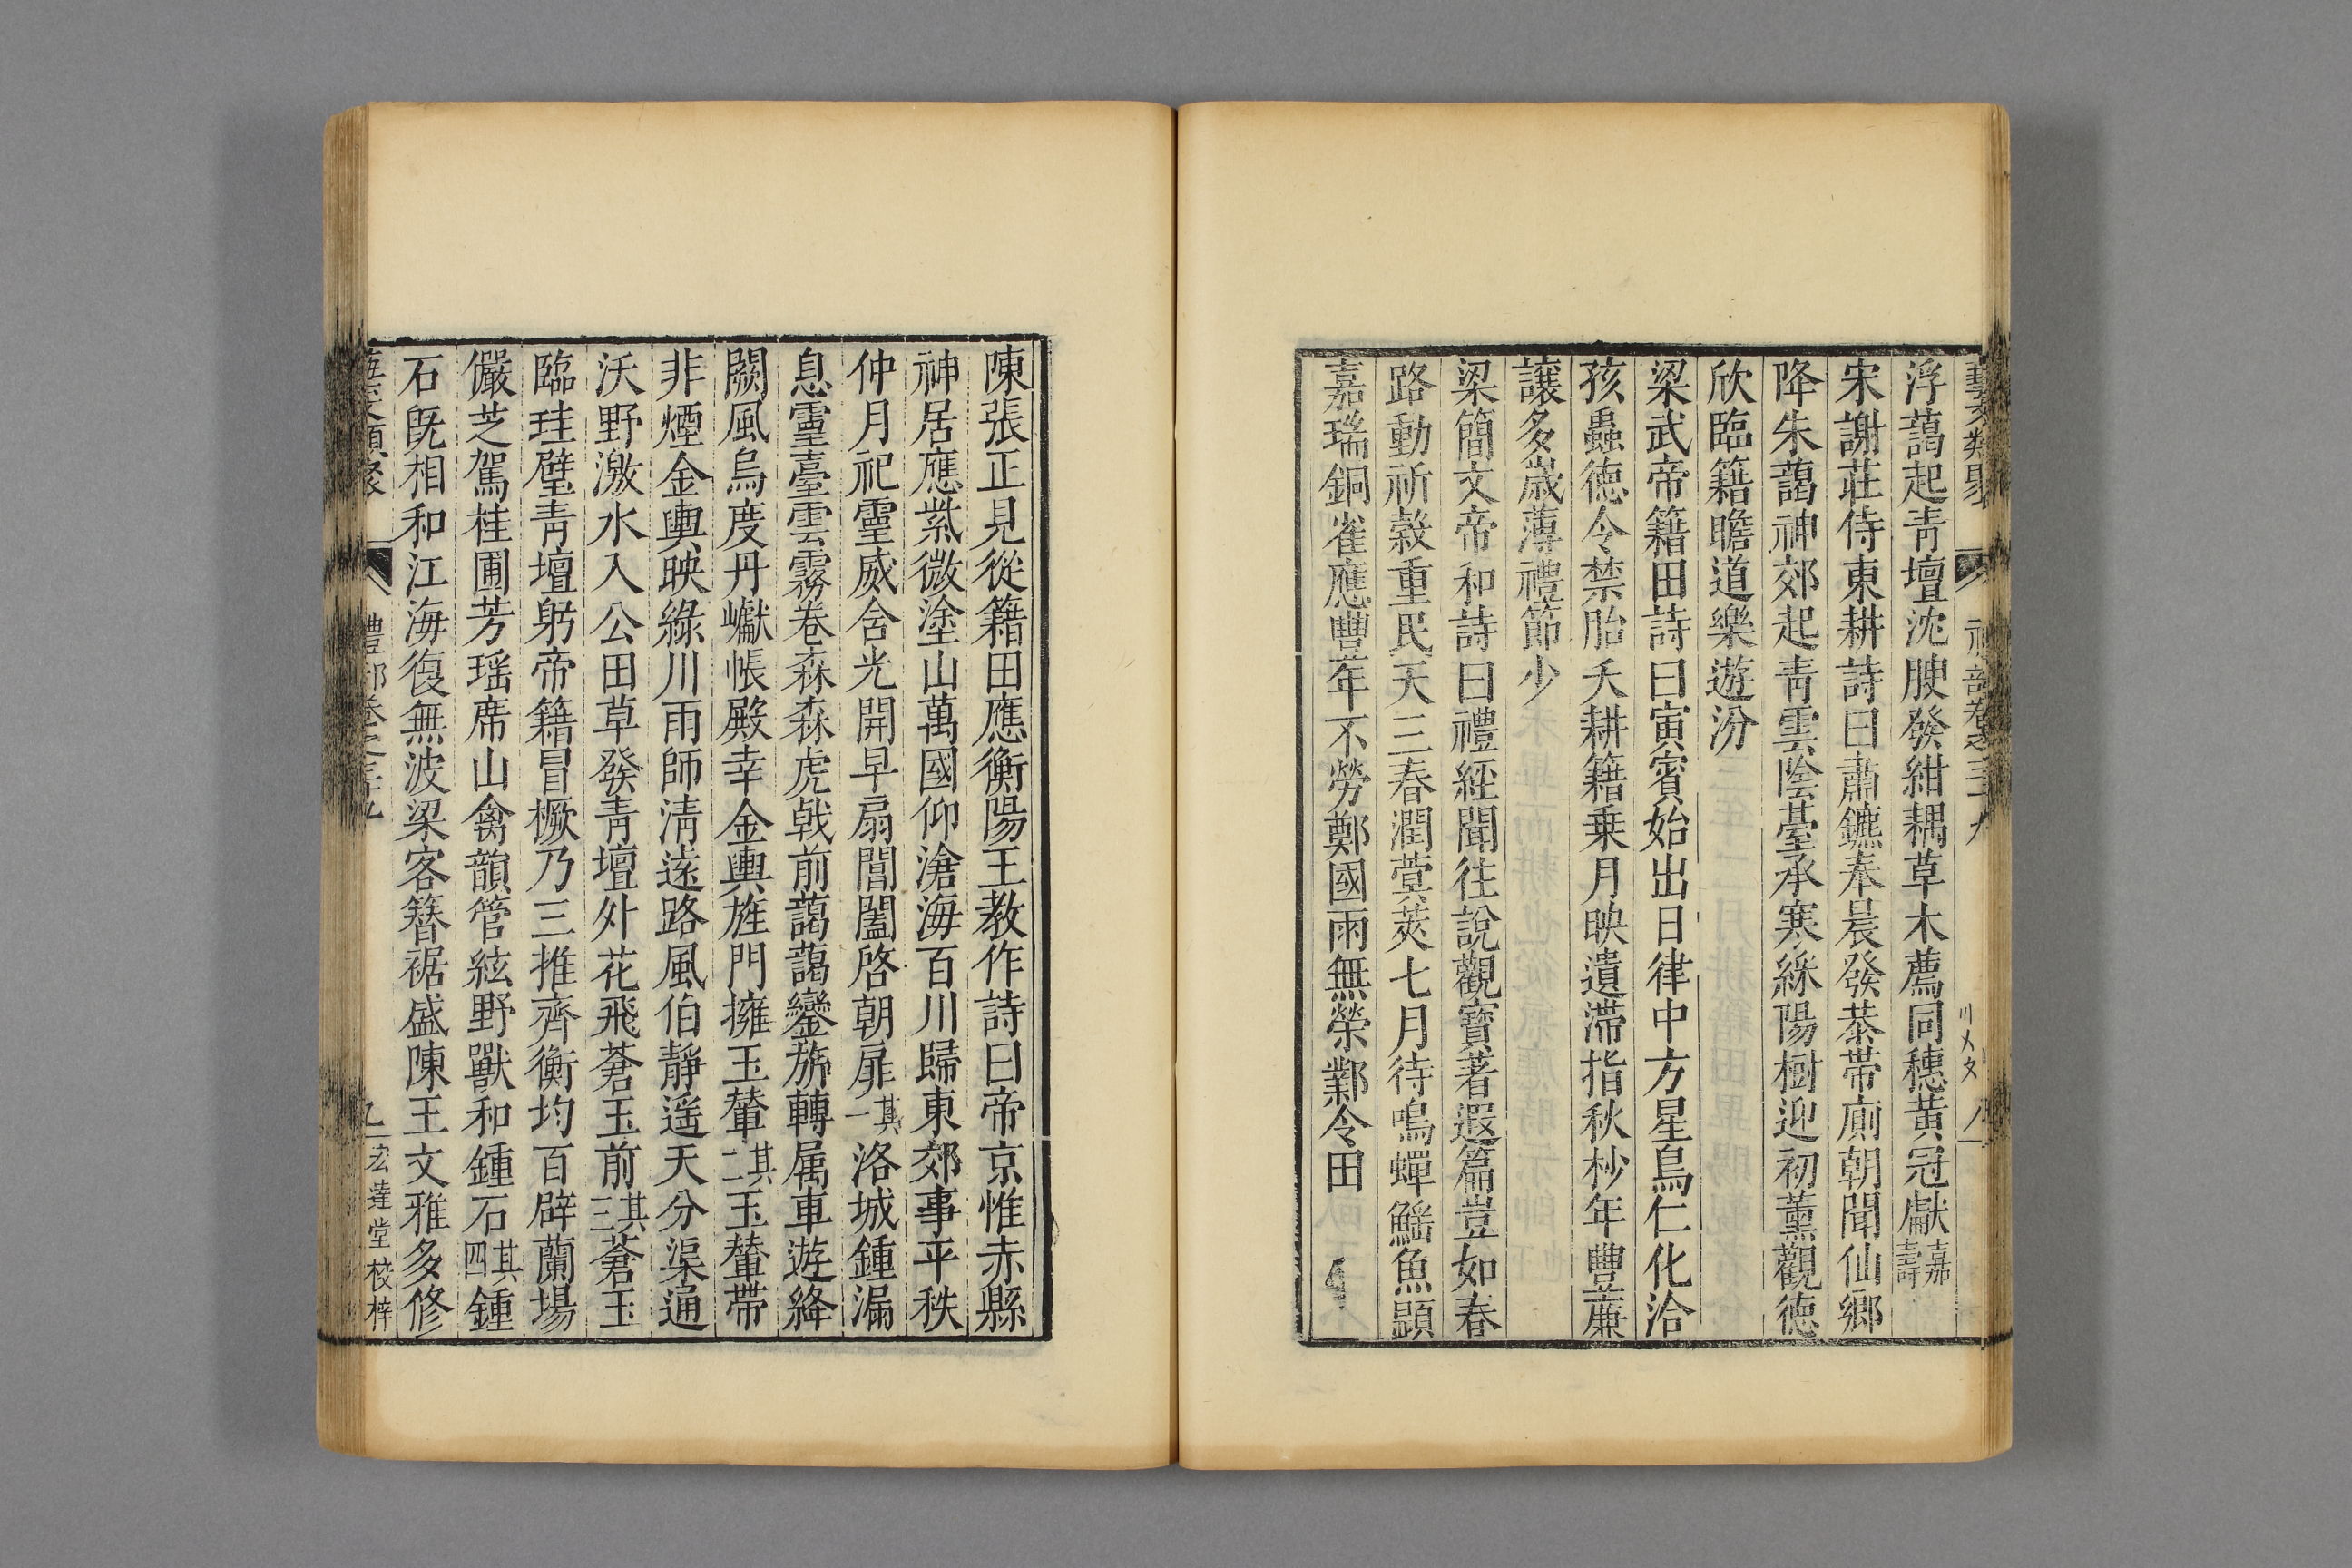 浮藹起青壇沈腴發紺耦草木薦同穗黃冠獻嘉壽
宋謝莊侍東耕詩曰肅鑣奉晨發恭帶廁朝聞仙鄉
降朱藹神郊起青雲陰臺承寒綵陽樹迎初薰觀德
欣臨籍瞻道樂遊汾
梁武帝籍田詩曰寅賓始出日律中方星鳥仁化洽
孩蟲德令禁胎夭耕籍乗月映遺滯指秋杪年豐廉
讓多歲薄禮節少
梁簡文帝和詩曰禮經聞往說觀寶著遐篇豈如春
路動祈穀重民天三春潤蓂莢七月待鳴蟬鰩魚顯
嘉瑞銅雀應豐年不勞鄭國雨無榮鄴令田
陳張正見從籍田應衡陽王教作詩曰帝京惟赤縣
神居應紫微塗山萬國仰滄海百川歸東郊事平秩
仲月祀靈威含光開早扇閶闔啓朝扉其一洛城鍾漏
息靈臺雲霧卷森森虎戟前藹藹鑾旂轉属車遊絳
闕風烏度丹巘帳殿幸金輿旌門擁玉輦其二玉輦帶
非煙金輿映綠川雨師清遠路風伯靜遥天分渠通
沃野激水入公田草發青壇外花飛蒼玉前其三蒼玉
臨珪璧青壇躬帝籍冒橛乃三推齊衡均百辟蘭場
儼芝駕桂圃芳瑶席山禽韻管絃野獸和鍾石其四鍾
石既相和江海復無波梁客簪裾盛陳王文雅多修
藝文類聚 禮部卷之三十九 九 宏達堂校梓